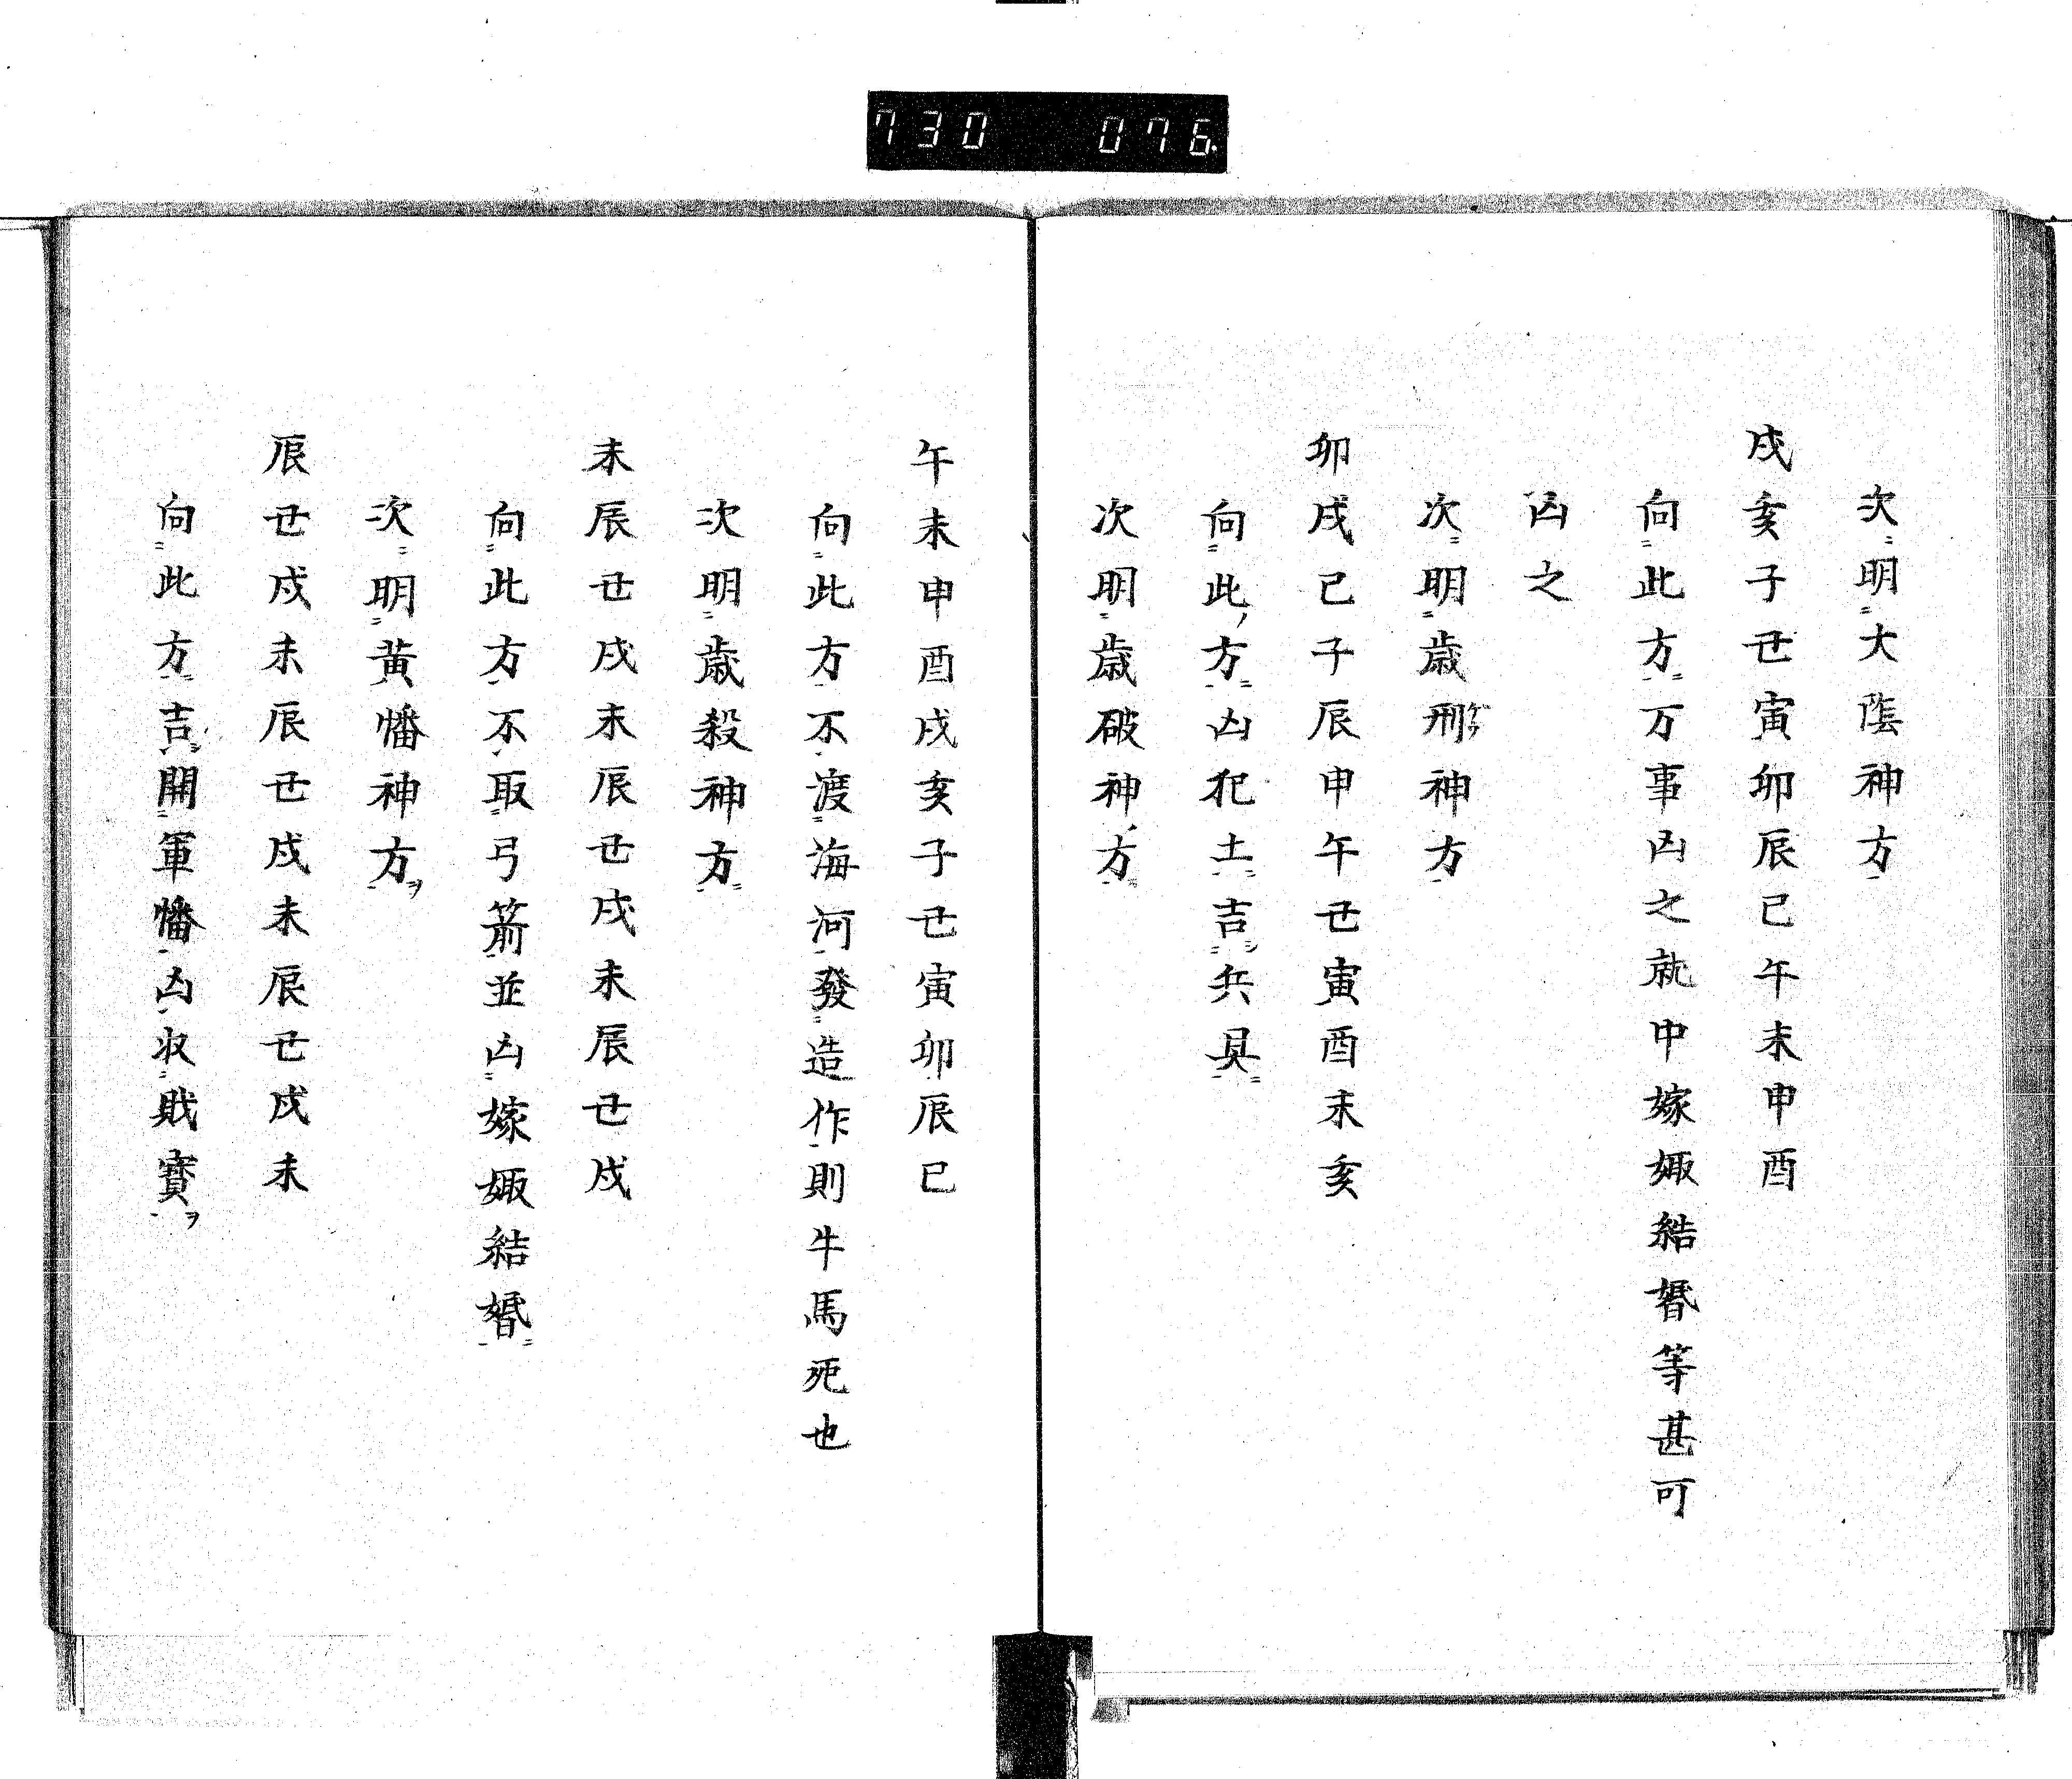 730 076
次明大陰神方
戌亥子丑寅卯辰巳午未申酉
向此方万事凶之就中嫁娵結婚等甚可
凶之
次明歳刑神方
卯戌巳子辰申午丑寅酉未亥
向此方凶犯土吉兵具
次明歳破神方
午未申酉戌亥子丑寅卯辰巳
向此方不渡海河發造作則牛馬死也
次明歳殺神方
未辰丑戌未辰丑戌未辰丑戌
向此方不取弓箭並凶嫁娵結婚
次明黄幡神方
辰丑戌未辰丑戌未辰丑戌未
向此方吉開軍幡凶収財寶